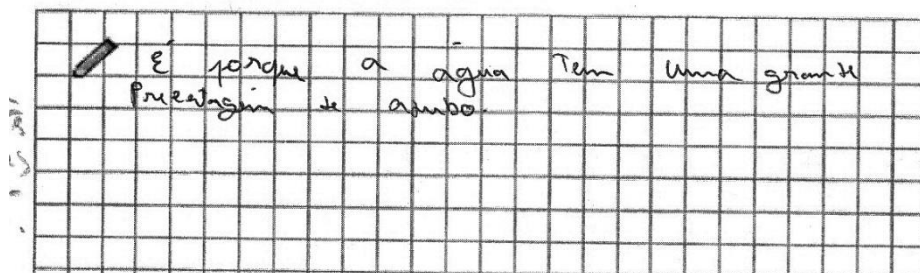 É porque a água Tem uma grande
Precentagem de adubo.